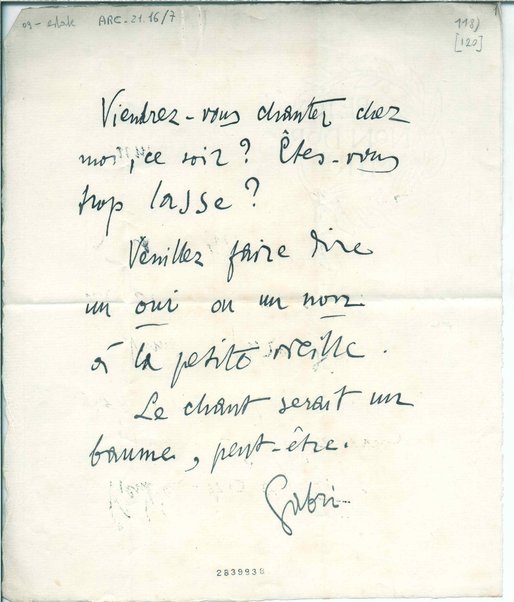 ARC. 21. 16/7
118)
[120]
Viendrez-vous chanter chez
moi, ce soir? Êtes-vous
trop lasse?
Veuillez faire dire
un oui ou un non
à la petite vieille.
Le chant serait un
baume, peut-être.
Gabri
2839938